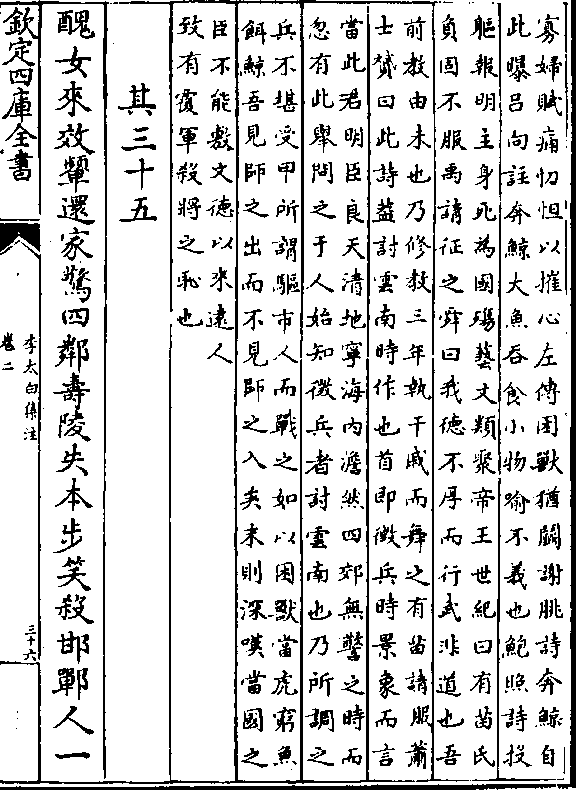 寡婦賦痛忉怛以摧心左傳困獸猶鬭謝朓詩奔鯨自
此曝呂向註奔鯨大魚吞食小物喻不義也鮑照詩投
軀報明主身死為國殤藝文類聚帝王世紀曰有苗氏
負固不服禹請征之舜曰我德不厚而行武非道也吾
前教由未也乃修教三年執干戚而舞之有苗請服蕭
士贇曰此詩葢討雲南時作也首即徵兵時景象而言
當此君明臣良天清地寧海内澹然四郊無警之時而
忽有此舉問之于人始知徵兵者討雲南也乃所調之
兵不堪受甲所謂驅市人而戰之如以困獸當虎窮魚
餌鯨吾見師之出而不見師之入矣末則深嘆當國之
臣不能敷文德以來逺人
致有覆軍殺將之恥也
其三十五
醜女來效顰還家驚四鄰壽陵失本步笑殺邯鄲人一
欽定四庫全書
李太白集注
卷二
三十六